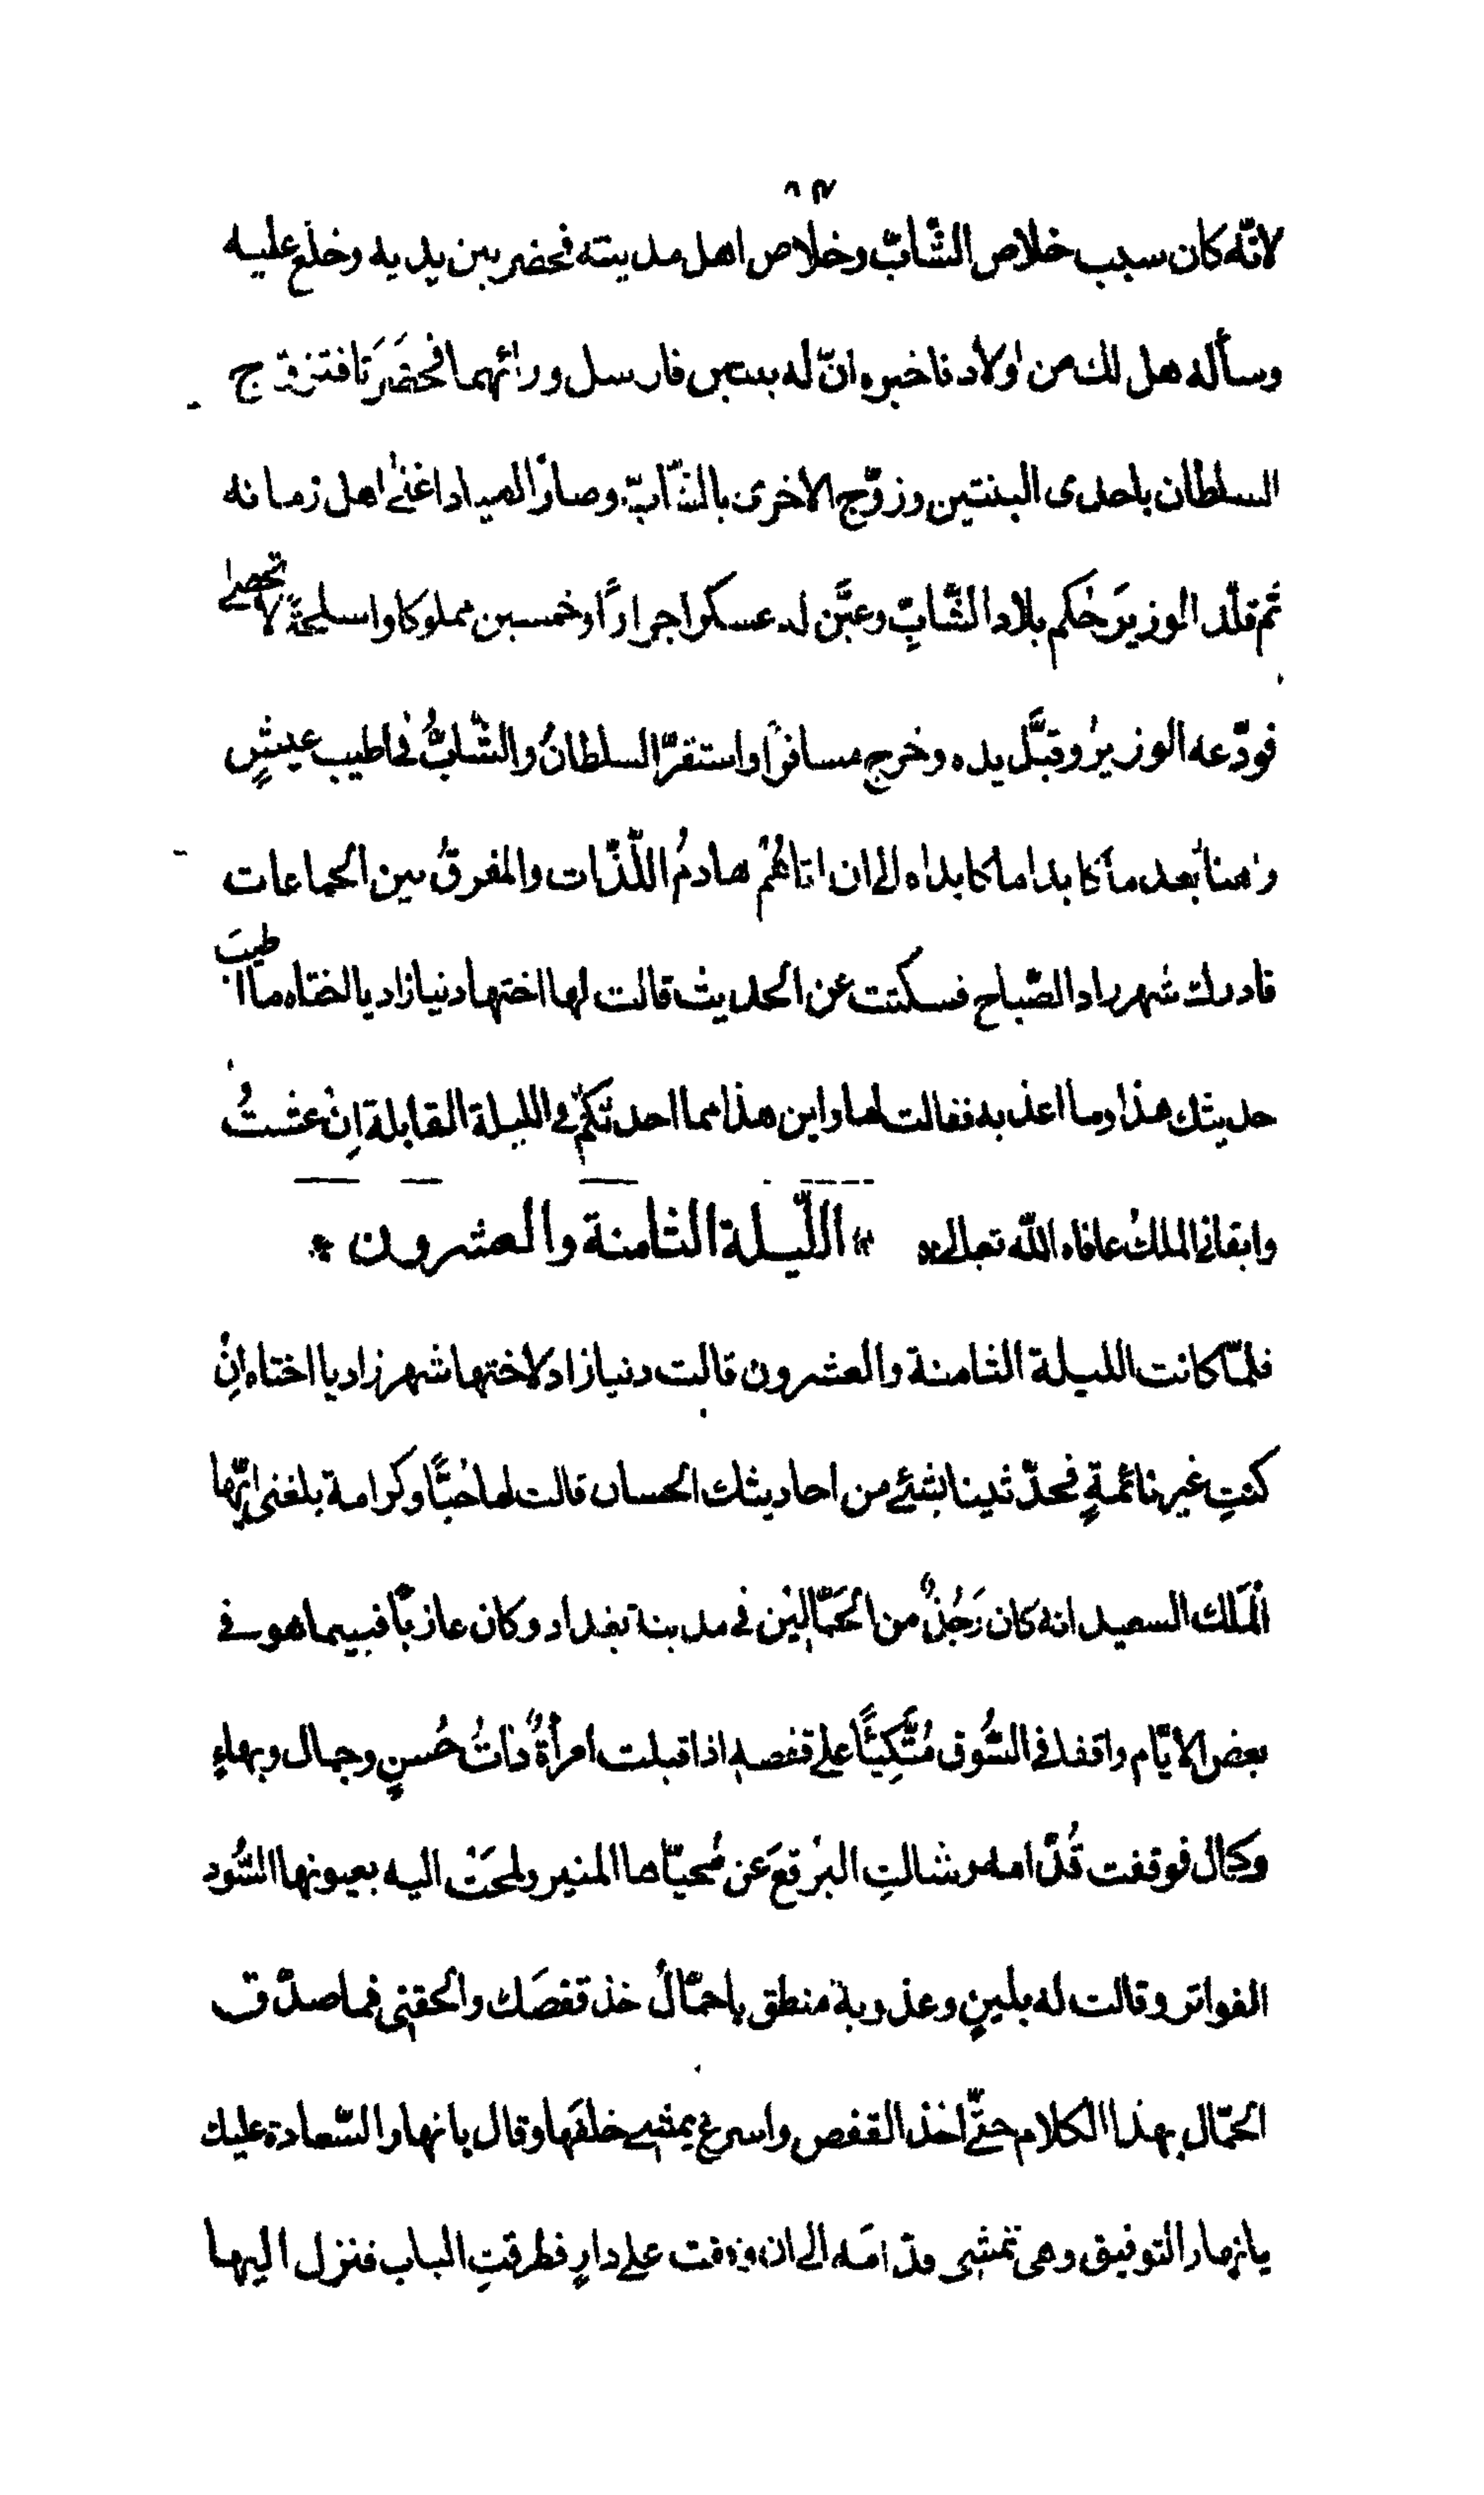 لانّه كان سبب خلاص الشّابّ وخلاص اهل مدينته فحضر بين يديه وخلع عليه
وساله هل لك من اولاد فاخبره انّ له بنتين فارسل ورائهما فحَضَرَتا فتزوّج
السلطان باحدى البنتين وزوّج الاخرى بالشّابّ وصار الصياد اغنى اهل زمانه
ثم قلّد الوزيرَ حُكم بلاد الشّابّ وعيَّن له عسكرا جرارًا وخمسين مملوكا واسلحةً لا تحصى
فودّعه الوزيرُ وقبَّل يده وخرج مسافرًا واستقرّ السلطانُ والشّابُّ في اطيب عيشٍ
وهنا بعد ما كابدا ما كابداه الى ان اتاهُم هادمُ اللّذّات والمفرقُ بين الجماعات
فادرك شهرزاد الصّباح فسكتت عن الحديث قالت لها اختها دنيازاد يا اختاه ما اطيبَ
حديثك هذا وما اعذبه فقالت لها واين هذا مما احدثكم في الليلة القابلة اِن عشتُ
وابقاني الملكُ عافاه اللّه تعالى * الليلة الثامنة والعشرون *
فلمّا كانت الليلة الثامنة والعشرون قالت دنيازاد لاختها شهرزاد يا اختاه اِن
كنتِ غير نائمةٍ فحدّثينا بشئ من احاديثك الحسان قالت لها حُبًّا وكرامة بلغني ايّها
المَلك السعيد انه كان رَجُلٌ من الحَمّالين في مدينة بغداد وكان عازبًا فبيما هو في
بعض الايّام واقف في السُّوق مُتَّكِئًا على قفصه اذ اقبلت امرأةٌ ذاتُ حُسنٍ وجمال وبهاءٍ
وكمال فوقفت قُدّامه وشالتِ البُرقعَ عن مُحيّاها المنير ولمحَت اليه بعيونها السُّود
الفواتر وقالت له بلينٍ وعذوبة منطق يا حمّالُ خذ قفصَك والحقني فما صدّق
الحمّال بهذا الكلام حتّى اخذ القفص واسرع يمشي خلفَها وقال يا نهار السّعادة عليك
يا نهار التوفيق وهي تمشي قدّامَه الى ان وقفت على دارٍ فطرقتِ الباب فنزل اليها